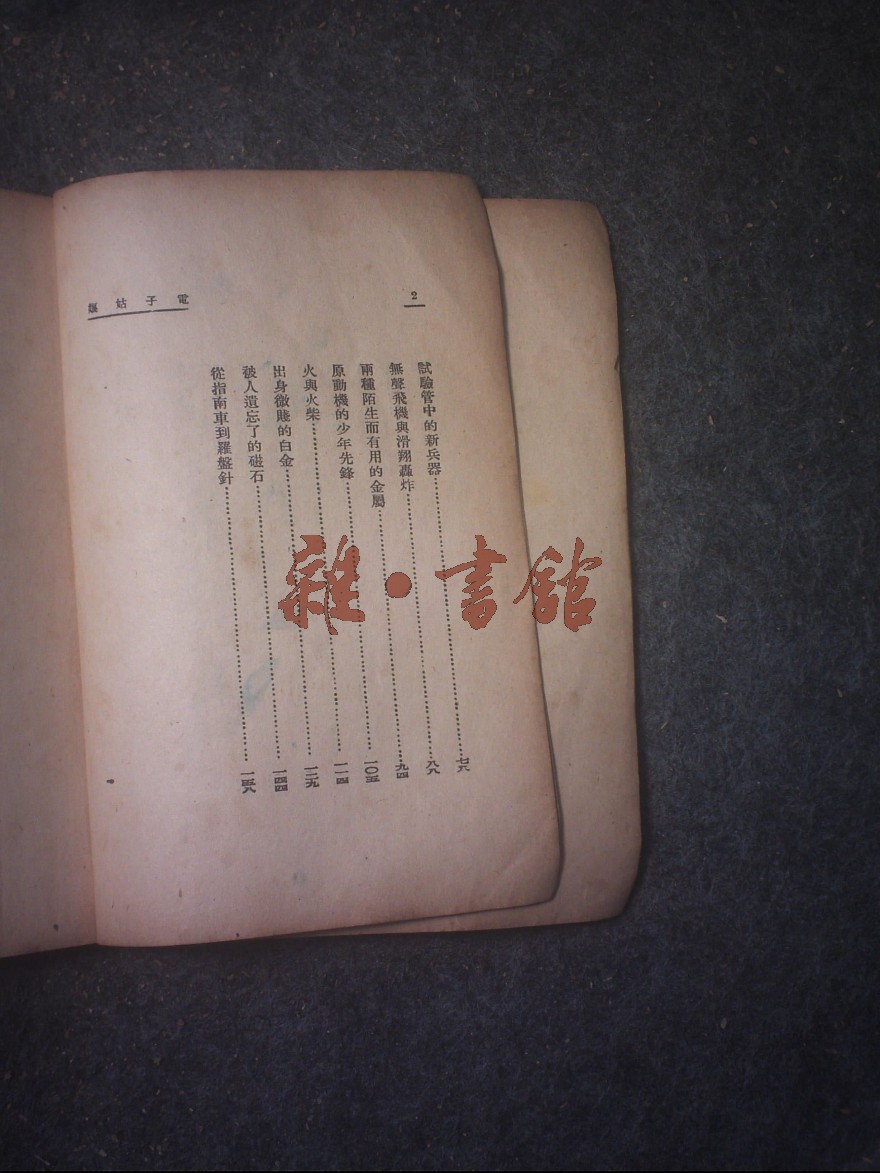 電子姑娘
2
試驗管中的新兵器……七八
無聲飛機與滑翔轟炸……八八
兩種陌生而有用的金屬……九四
原動機的少年先鋒……一〇五
火與火柴……一一四
出身微賤的白金……一二九
被人遺忘了的磁石……一四四
從指南車到羅盤針……一五八
雜·書館